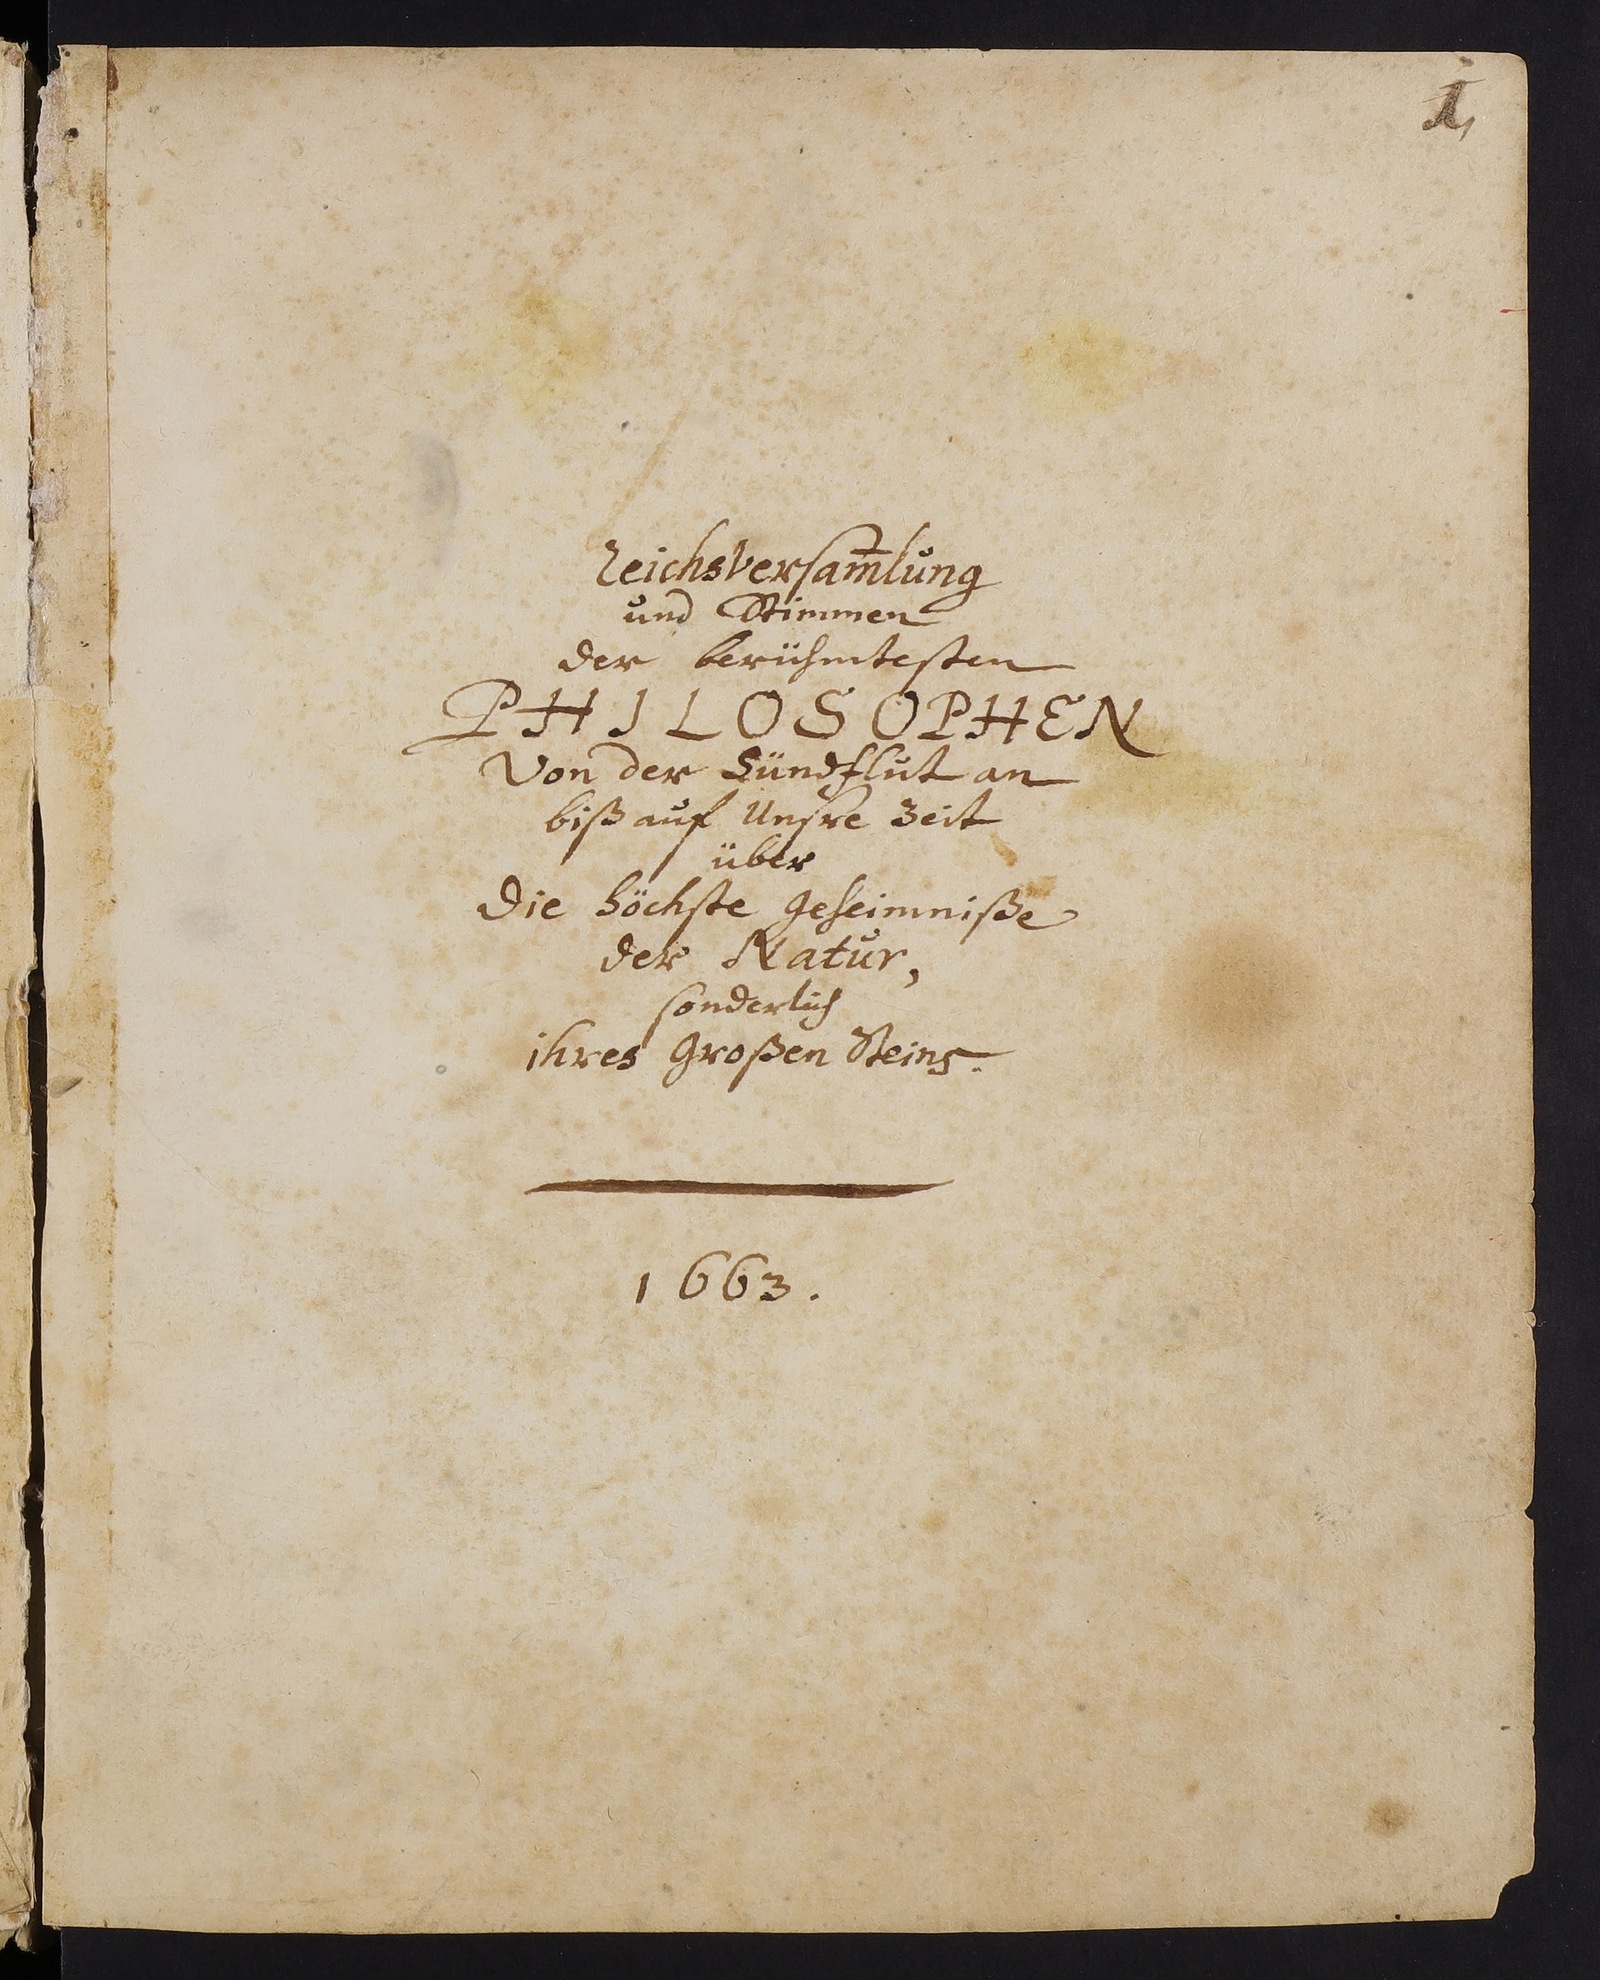 1
Reichsversam̅lung
und Stimmen
der berühmtesten
PHILOSOPHEN
Von der Sündflut an
biß auf Unsre Zeit
über
Die höchste geheimniße
der Natur,
sonderlich
ihres großen Steins.
1663.